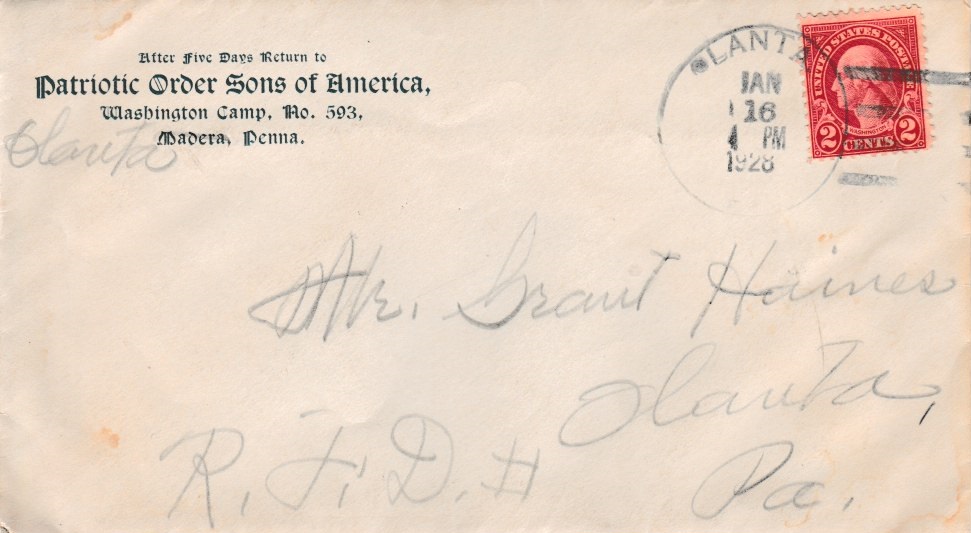 After Five Days Return to
Patriotic Order Sons of America,
Washington Camp, No. 593,
Madera, Penna.
Olanta
OLANTA
JAN
16
4 PM
1928
UNITED STATES POSTAGE
WASHINGTON
2 CENTS 2
Mr. Grant Haines
Olanta,
R. F. D. #
Pa.